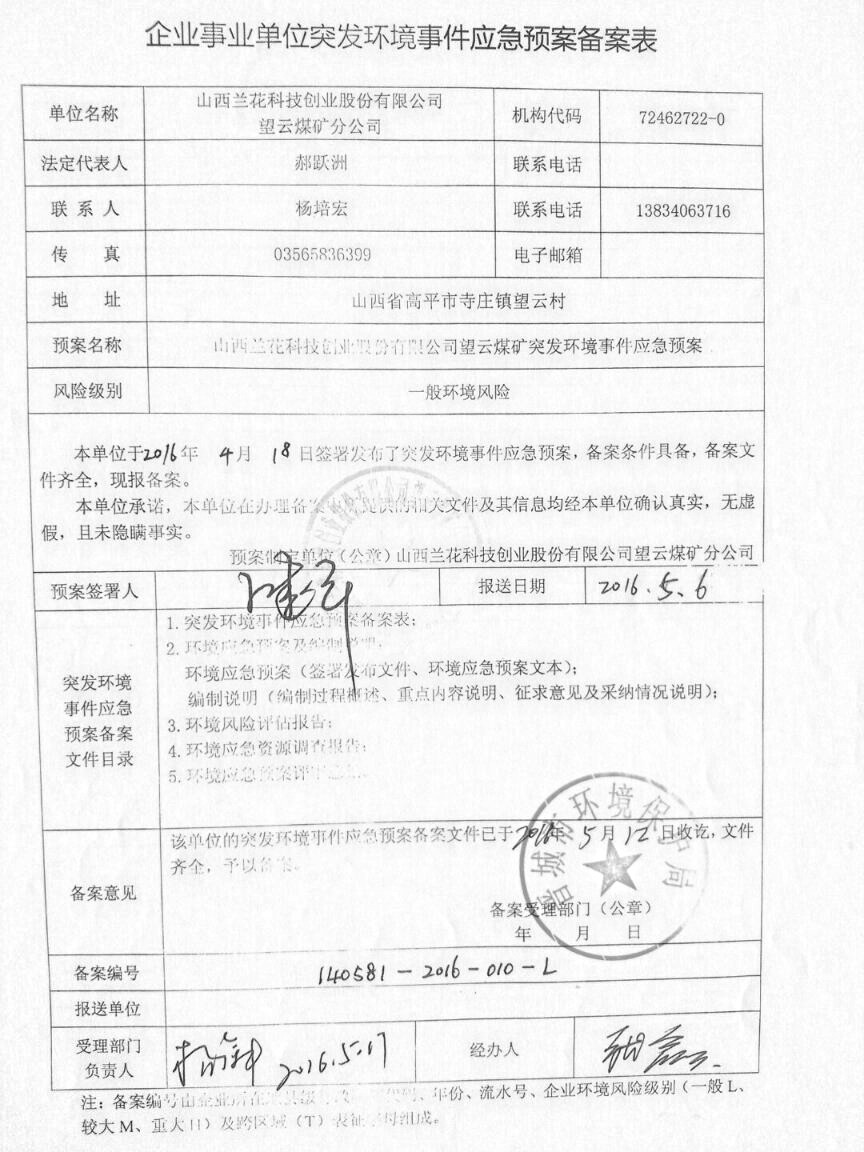 企业事业单位突发环境事件应急预案备案表
单位名称 山西兰花科技创业股份有限公司 望云煤矿分公司 机构代码 72462722-0
法定代表人 郝跃洲 联系电话
联系人 杨培宏 联系电话 13834063716
传真 03565836399 电子邮箱
地址 山西省高平市寺庄镇望云村
预案名称 山西兰花科技创业股份有限公司望云煤矿突发环境事件应急预案
风险级别 一般环境风险
本单位于2016年 4月 18日签署发布了突发环境事件应急预案，备案条件具备，备案文
件齐全，现报备案。
本单位承诺，本单位在办理备案中所提供的相关文件及其信息均经本单位确认真实，无虚
假，且未隐瞒事实。
预案制定单位（公章）山西兰花科技创业股份有限公司望云煤矿分公司
预案签署人 报送日期 2016.5.6
突发环境
事件应急
预案备案
文件目录
1.突发环境事件应急预案备案表；
2.环境应急预案及编制说明：
环境应急预案（签署发布文件、环境应急预案文本）；
编制说明（编制过程概述、重点内容说明、征求意见及采纳情况说明）；
3.环境风险评估报告；
4.环境应急资源调查报告；
5.环境应急预案评审意见。
备案意见
该单位的突发环境事件应急预案备案文件已于2016年5月12日收讫，文件
齐全，予以备案。
晋城市环境保护局
备案受理部门（公章）
年 月 日
备案编号 140581-2016-010-L
报送单位
受理部门
负责人 2016.5.17 经办人
注：备案编号由企业所在地县级行政区划代码、年份、流水号、企业环境风险级别（一般L、
较大M、重大H）及跨区域（T）表征字母组成。